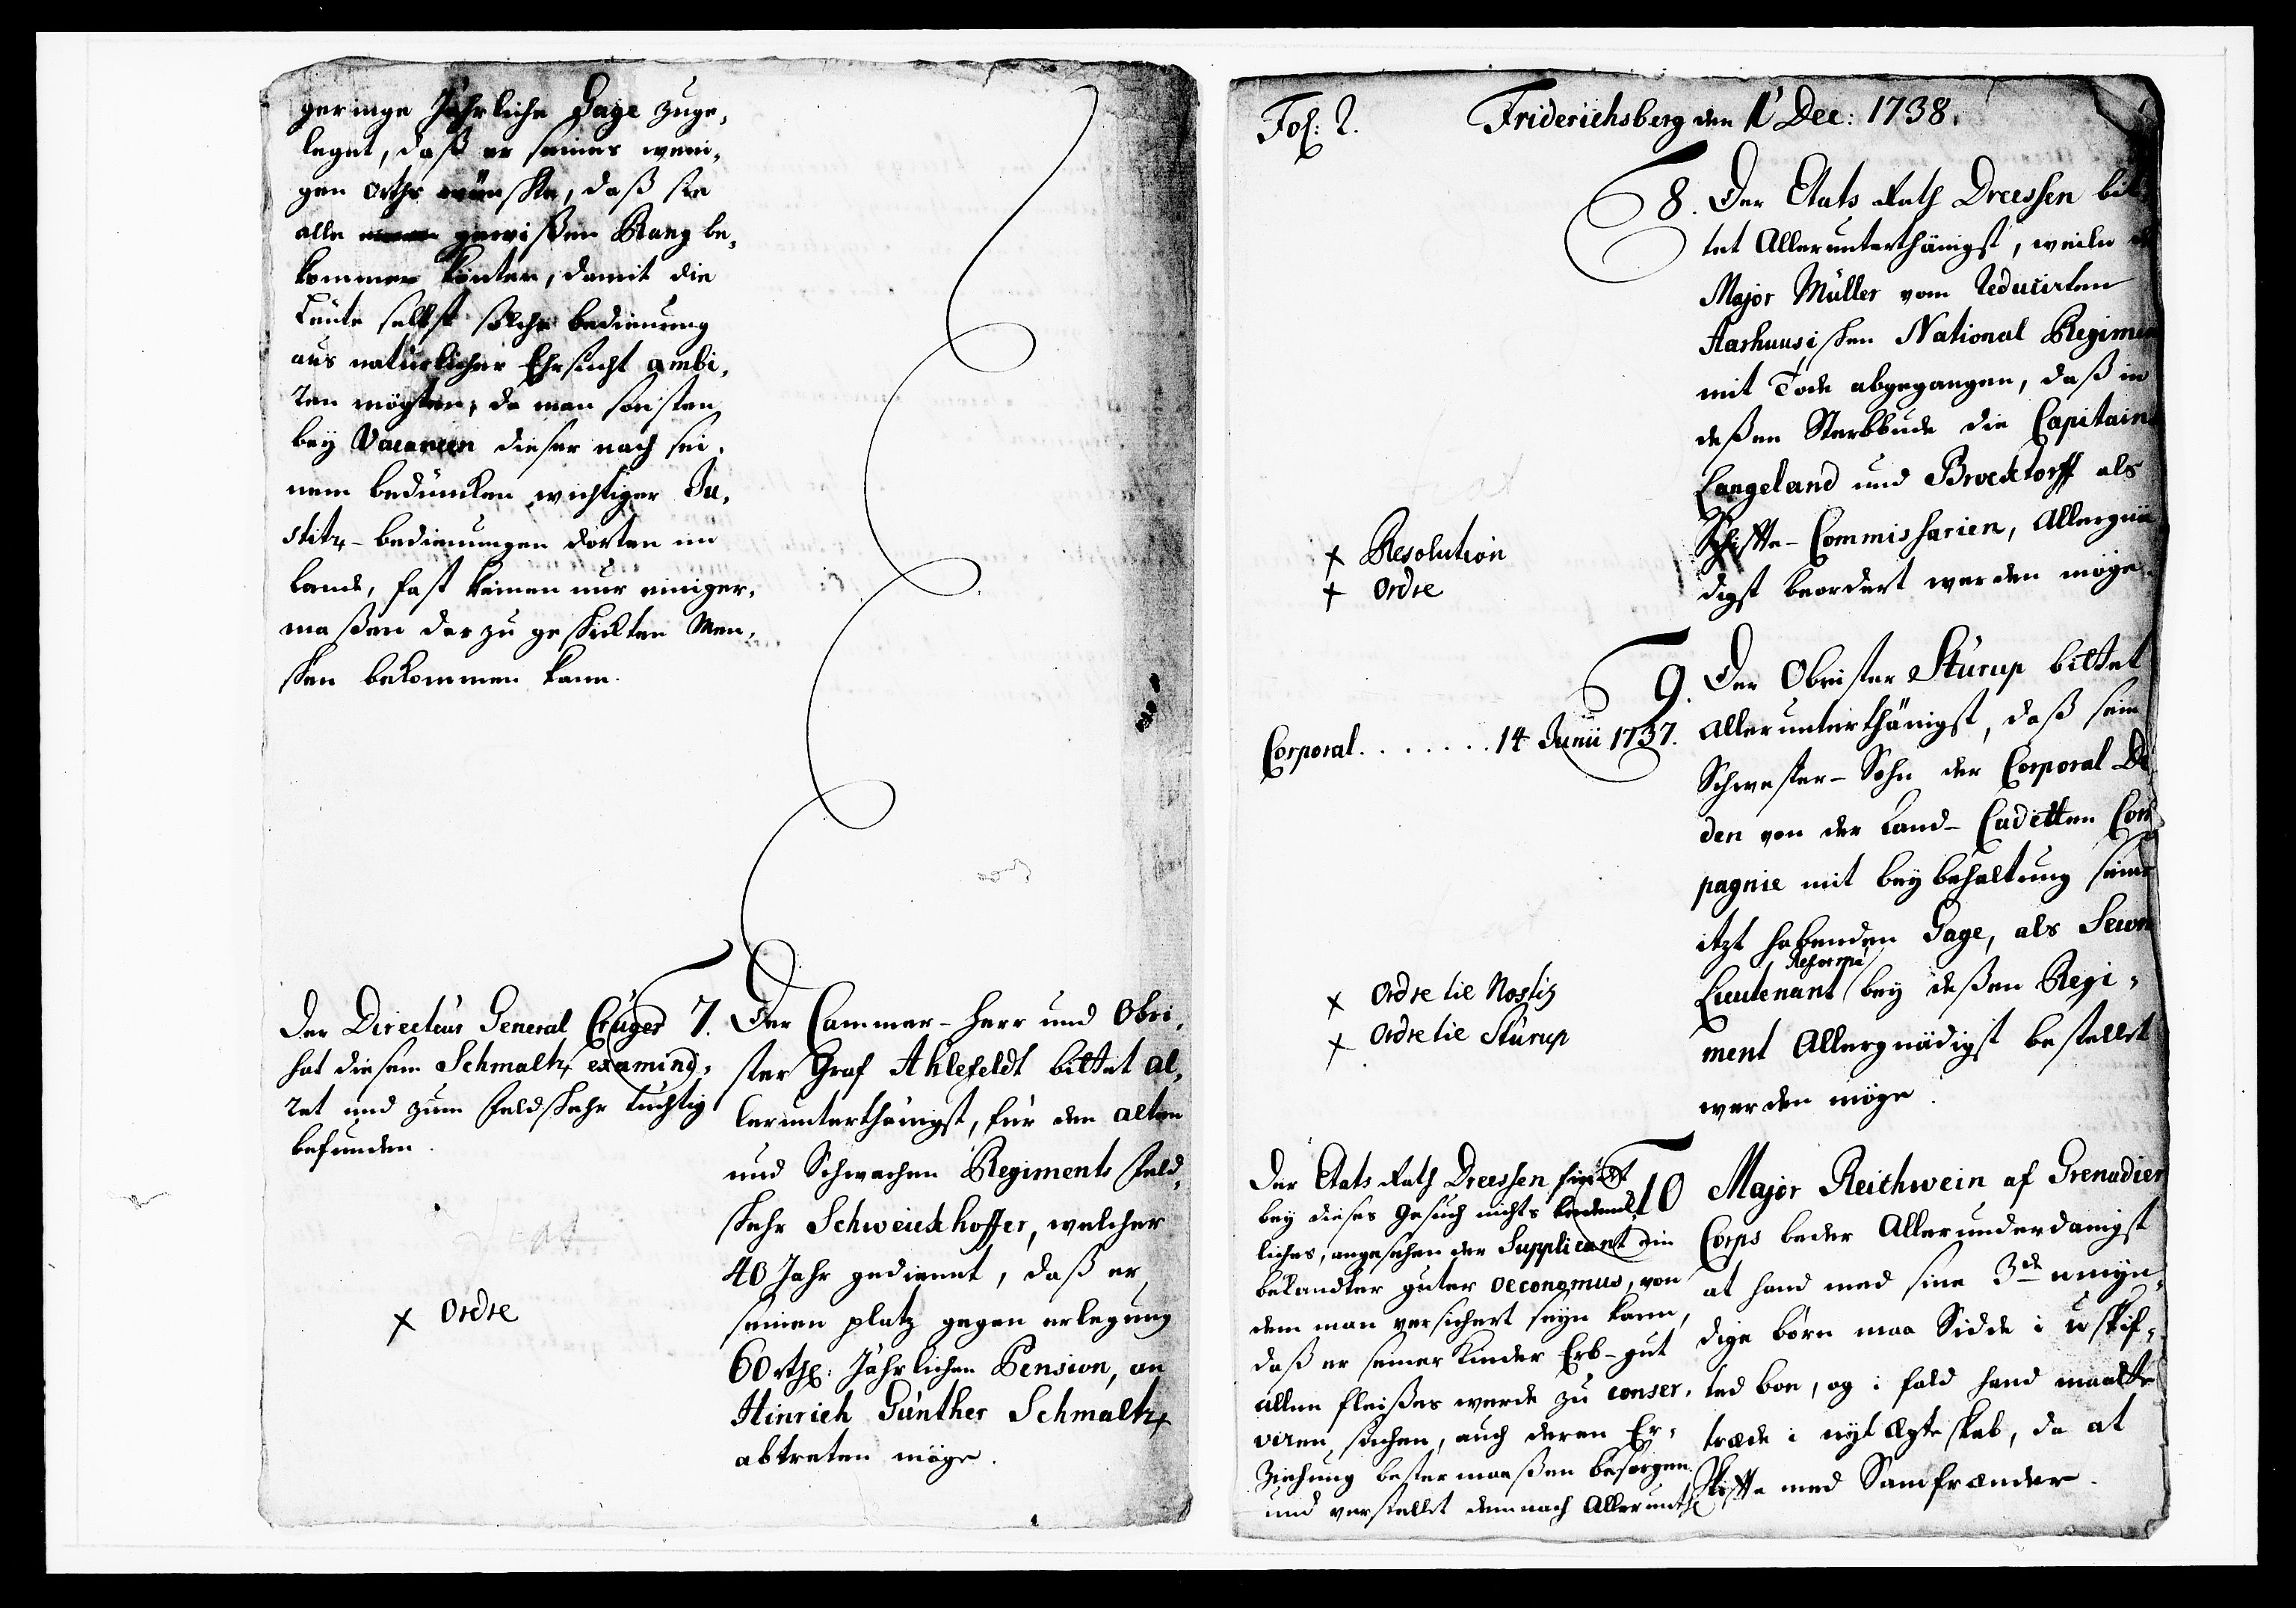 geringe Jährliche Gage zuge,
leget, daß er seines weni,
gen Orths wünschte, daß sie
alle gewißen Rang be,
kommen könten, damit die
Leute selbst solche bedienung
aus natürlicher Ehrsucht ambi,
ren mögten, da man sonsten
bey Vacancen dieser nach sei,
nem bedüncken wichtiger Ju,
stitz-bedienungen dorten im
Lande, fast keinen nur einiger,
maßen darzu geschickten Men,
schen bekommen kann.
Der Directeur General Crüger
hat diesem Schmaltz examini,
ret und zum Feldscher tüchtig
befunden.
× Ordre
7. Der Cammer-Herr und Obri,
ster Graf Ahlefeldt bittet al,
lerunterthänigst, für den alten
und Schwachen Regiments Feld,
scher Schweickhoffer, welcher
40 Jahr gedienet, daß er
seinen platz gegen erlegung
60 rthl: Jährlichen Pension, an
Hinrich Günther Schmaltz
abtreten möge.
Fol: 2.
Friderichsberg den 1' Dec: 1738.
8. Der Etats Rath Dreessen bit,
tet Allerunterthänigst, weilen
Major Müller vom Reducirten
Aarhuusischen National Regimen
mit Tode abgegangen, daß in
deßen Sterbbude die Capitains
Langeland und Brocktorff als
Schiffte-Commissarien, Allergnä
digst beordert werden möge.
× Resolution
× Ordre
9. Der Obrister Stürup bittet
Allerunterthänigst, daß sein
Schwester-Sohn der Corporal De
den von der Land-Cadetten Com
pagnie mit beybehaltung seiner
itzt habenden Gage, als Secon
Reformé
Lieutenant bey deßen Regi,
ment Allergnädigst bestellet
werden möge.
Corporal . . . . . . . 14 Junii 1737.
× Ordre til Nostiz
× Ordre til Stürup
Der Etats Rath Dreessen findet
bey dieses Gesuch nichts bedenck,
liches, angesehen der Supplicant ein
bekandter guter oeconomus, von
dem man versichert seyn kann,
daß er seiner Kinder Erb-gut
allen fleißes werde zu conser,
viren suchen, auch deren Er,
ziehung bestermaaßen besorgen.
und verstellet demnach Allerunth
10 Major Reichwein af Grenadier
Corps beder Allerunderdanigst
at hand med sine 3de umyn,
dige börn maa Sidde i uskif,
ted boe, og i fald hand maatte
træde i nyt Ægteskab, da at
Skiffte med Samfrænder.